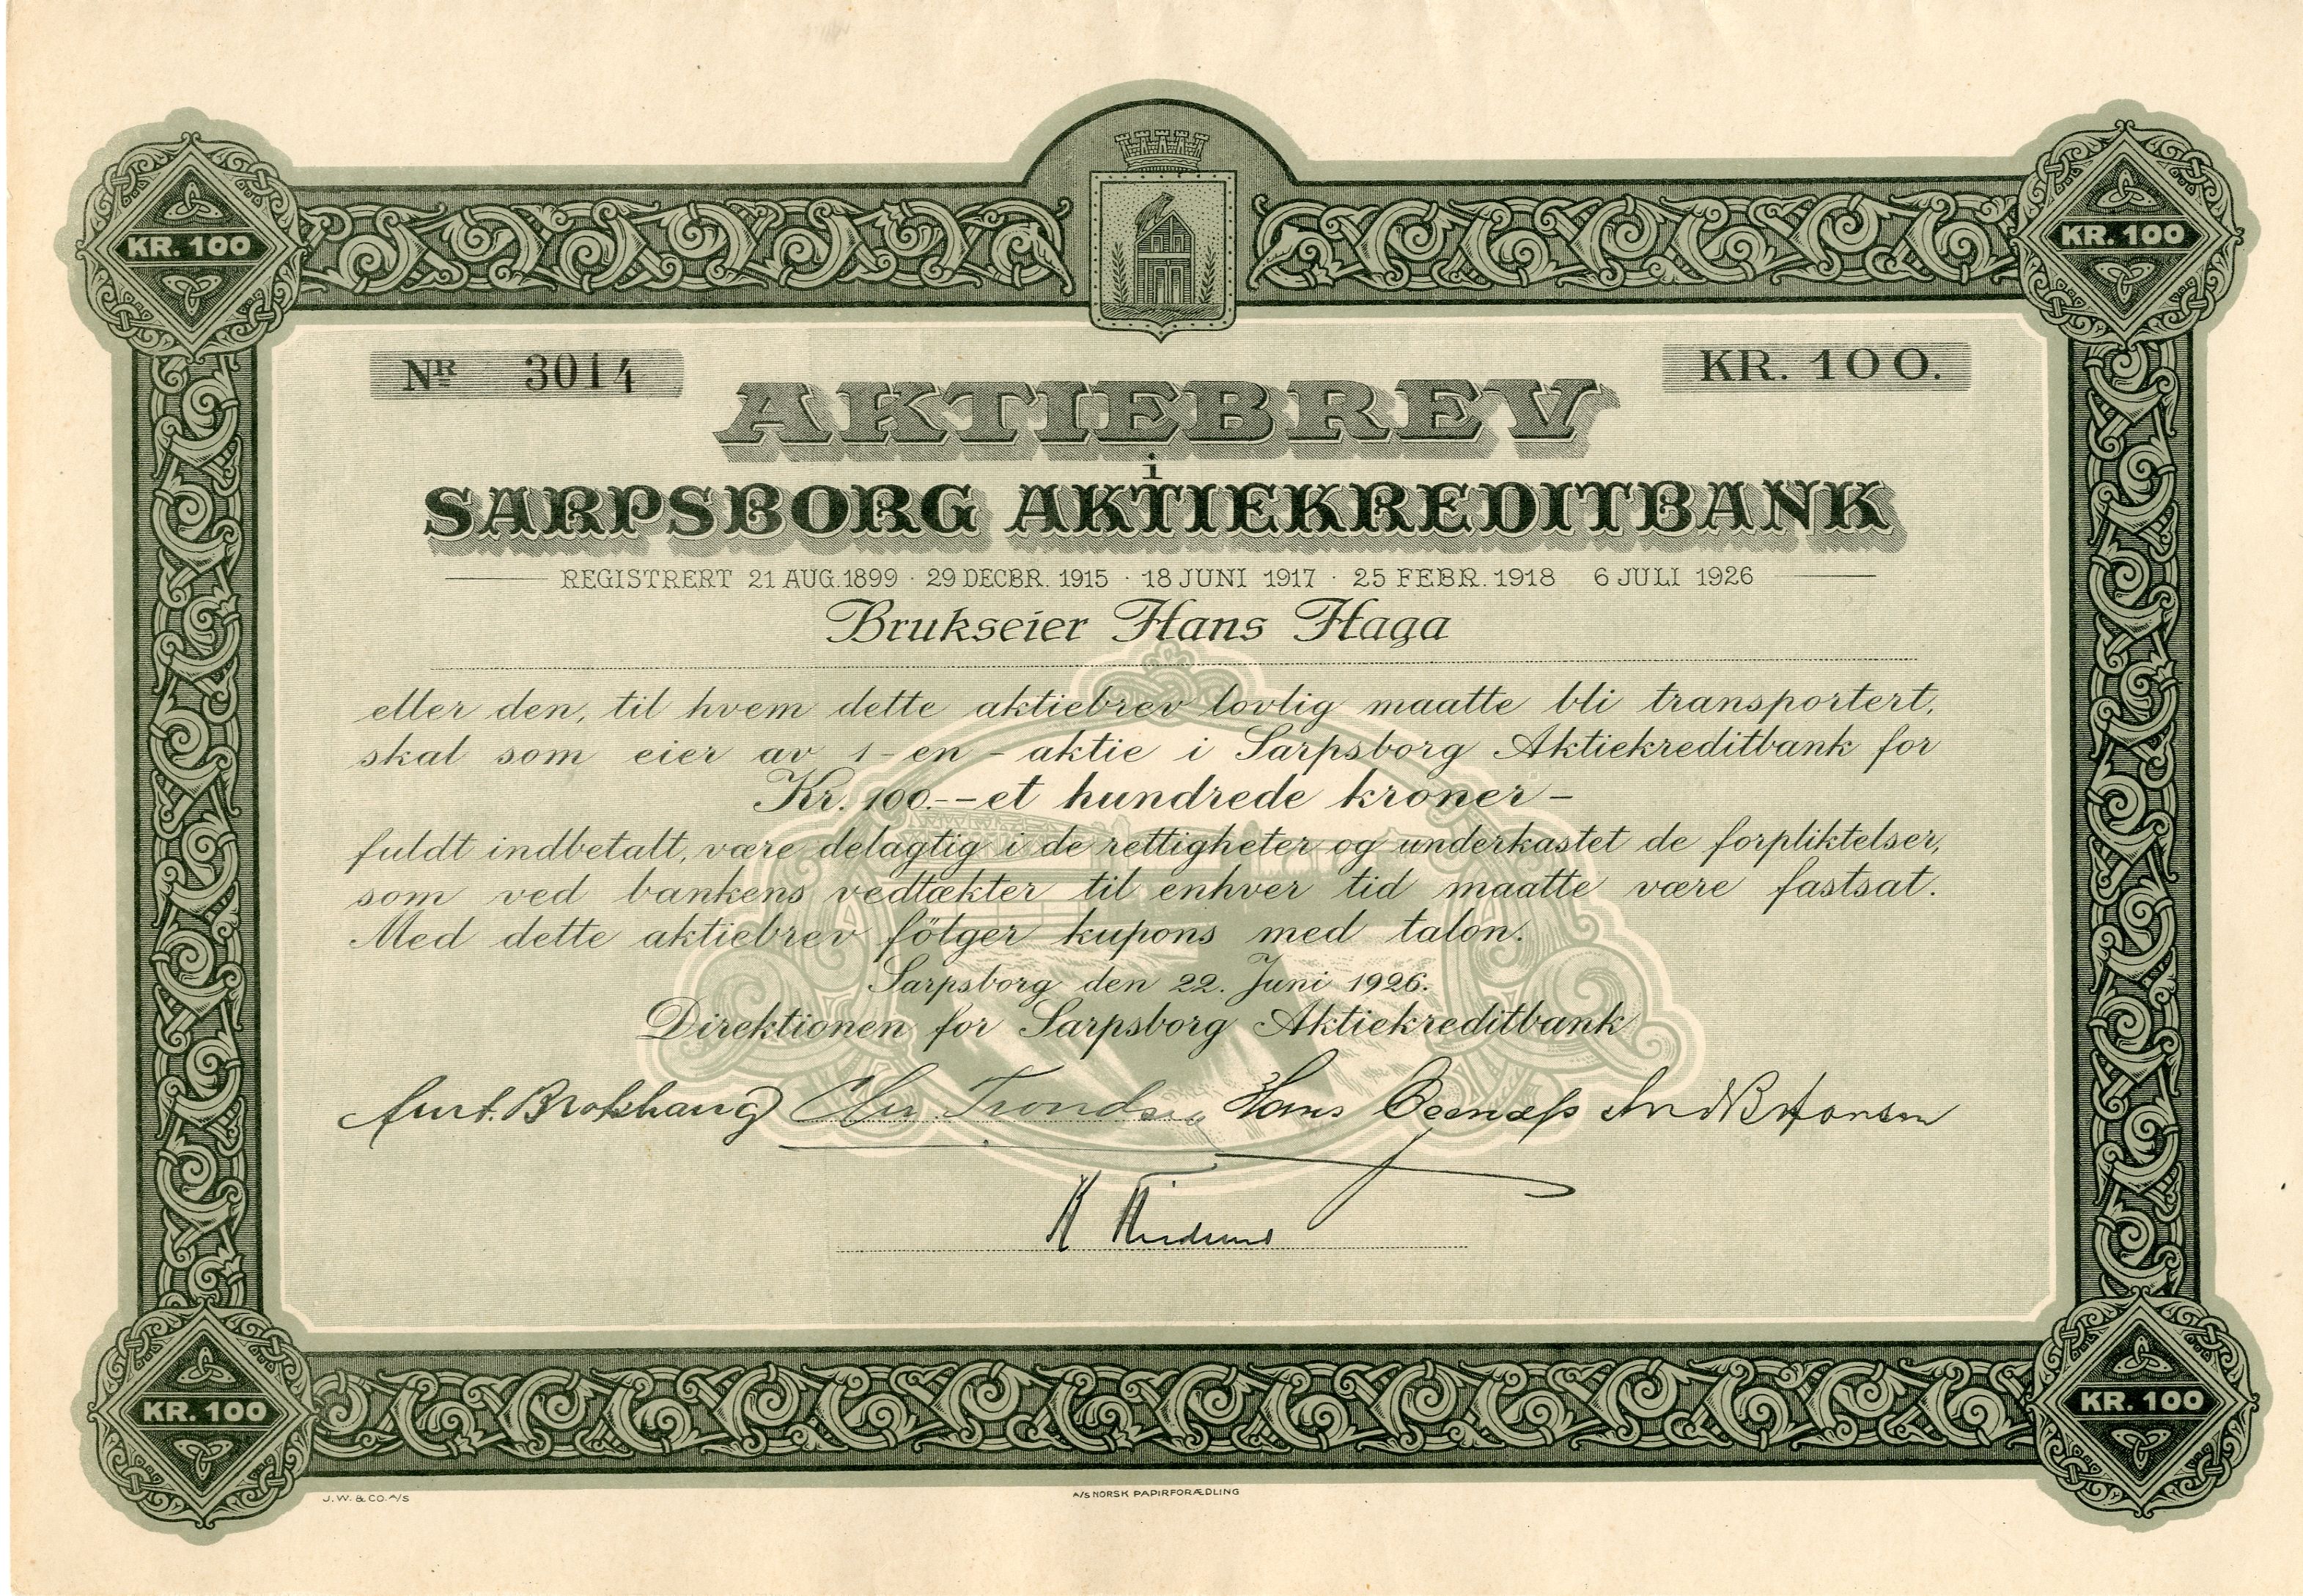 KR. 100
KR. 100
NR 3014
KR. 100.
AKTIEBREV
i
SARPSBORG AKTIEKREDITBANK
REGISTRERT 21 AUG. 1899 · 29 DECBR. 1915 · 18 JUNI 1917 · 25 FEBR. 1918 6 JULI 1926
Brukseier Hans Haga
eller den, til hvem dette aktiebrev lovlig maatte bli transportert,
skal som eier av 1 - en - aktie i Sarpsborg Aktiekreditbank for
Kr. 100.-- et hundrede kroner -
fuldt indbetalt, være delagtig i de rettigheter og underkastet de forpliktelser,
som ved bankens vedtækter til enhver tid maatte være fastsat.
Med dette aktiebrev fölger kupons med talon.
Sarpsborg den 22. Juni 1926.
Direktionen for Sarpsborg Aktiekreditbank
Hans
K
KR. 100
KR. 100
J. W. & CO. A/S
A/S NORSK PAPIRFORÆDLING